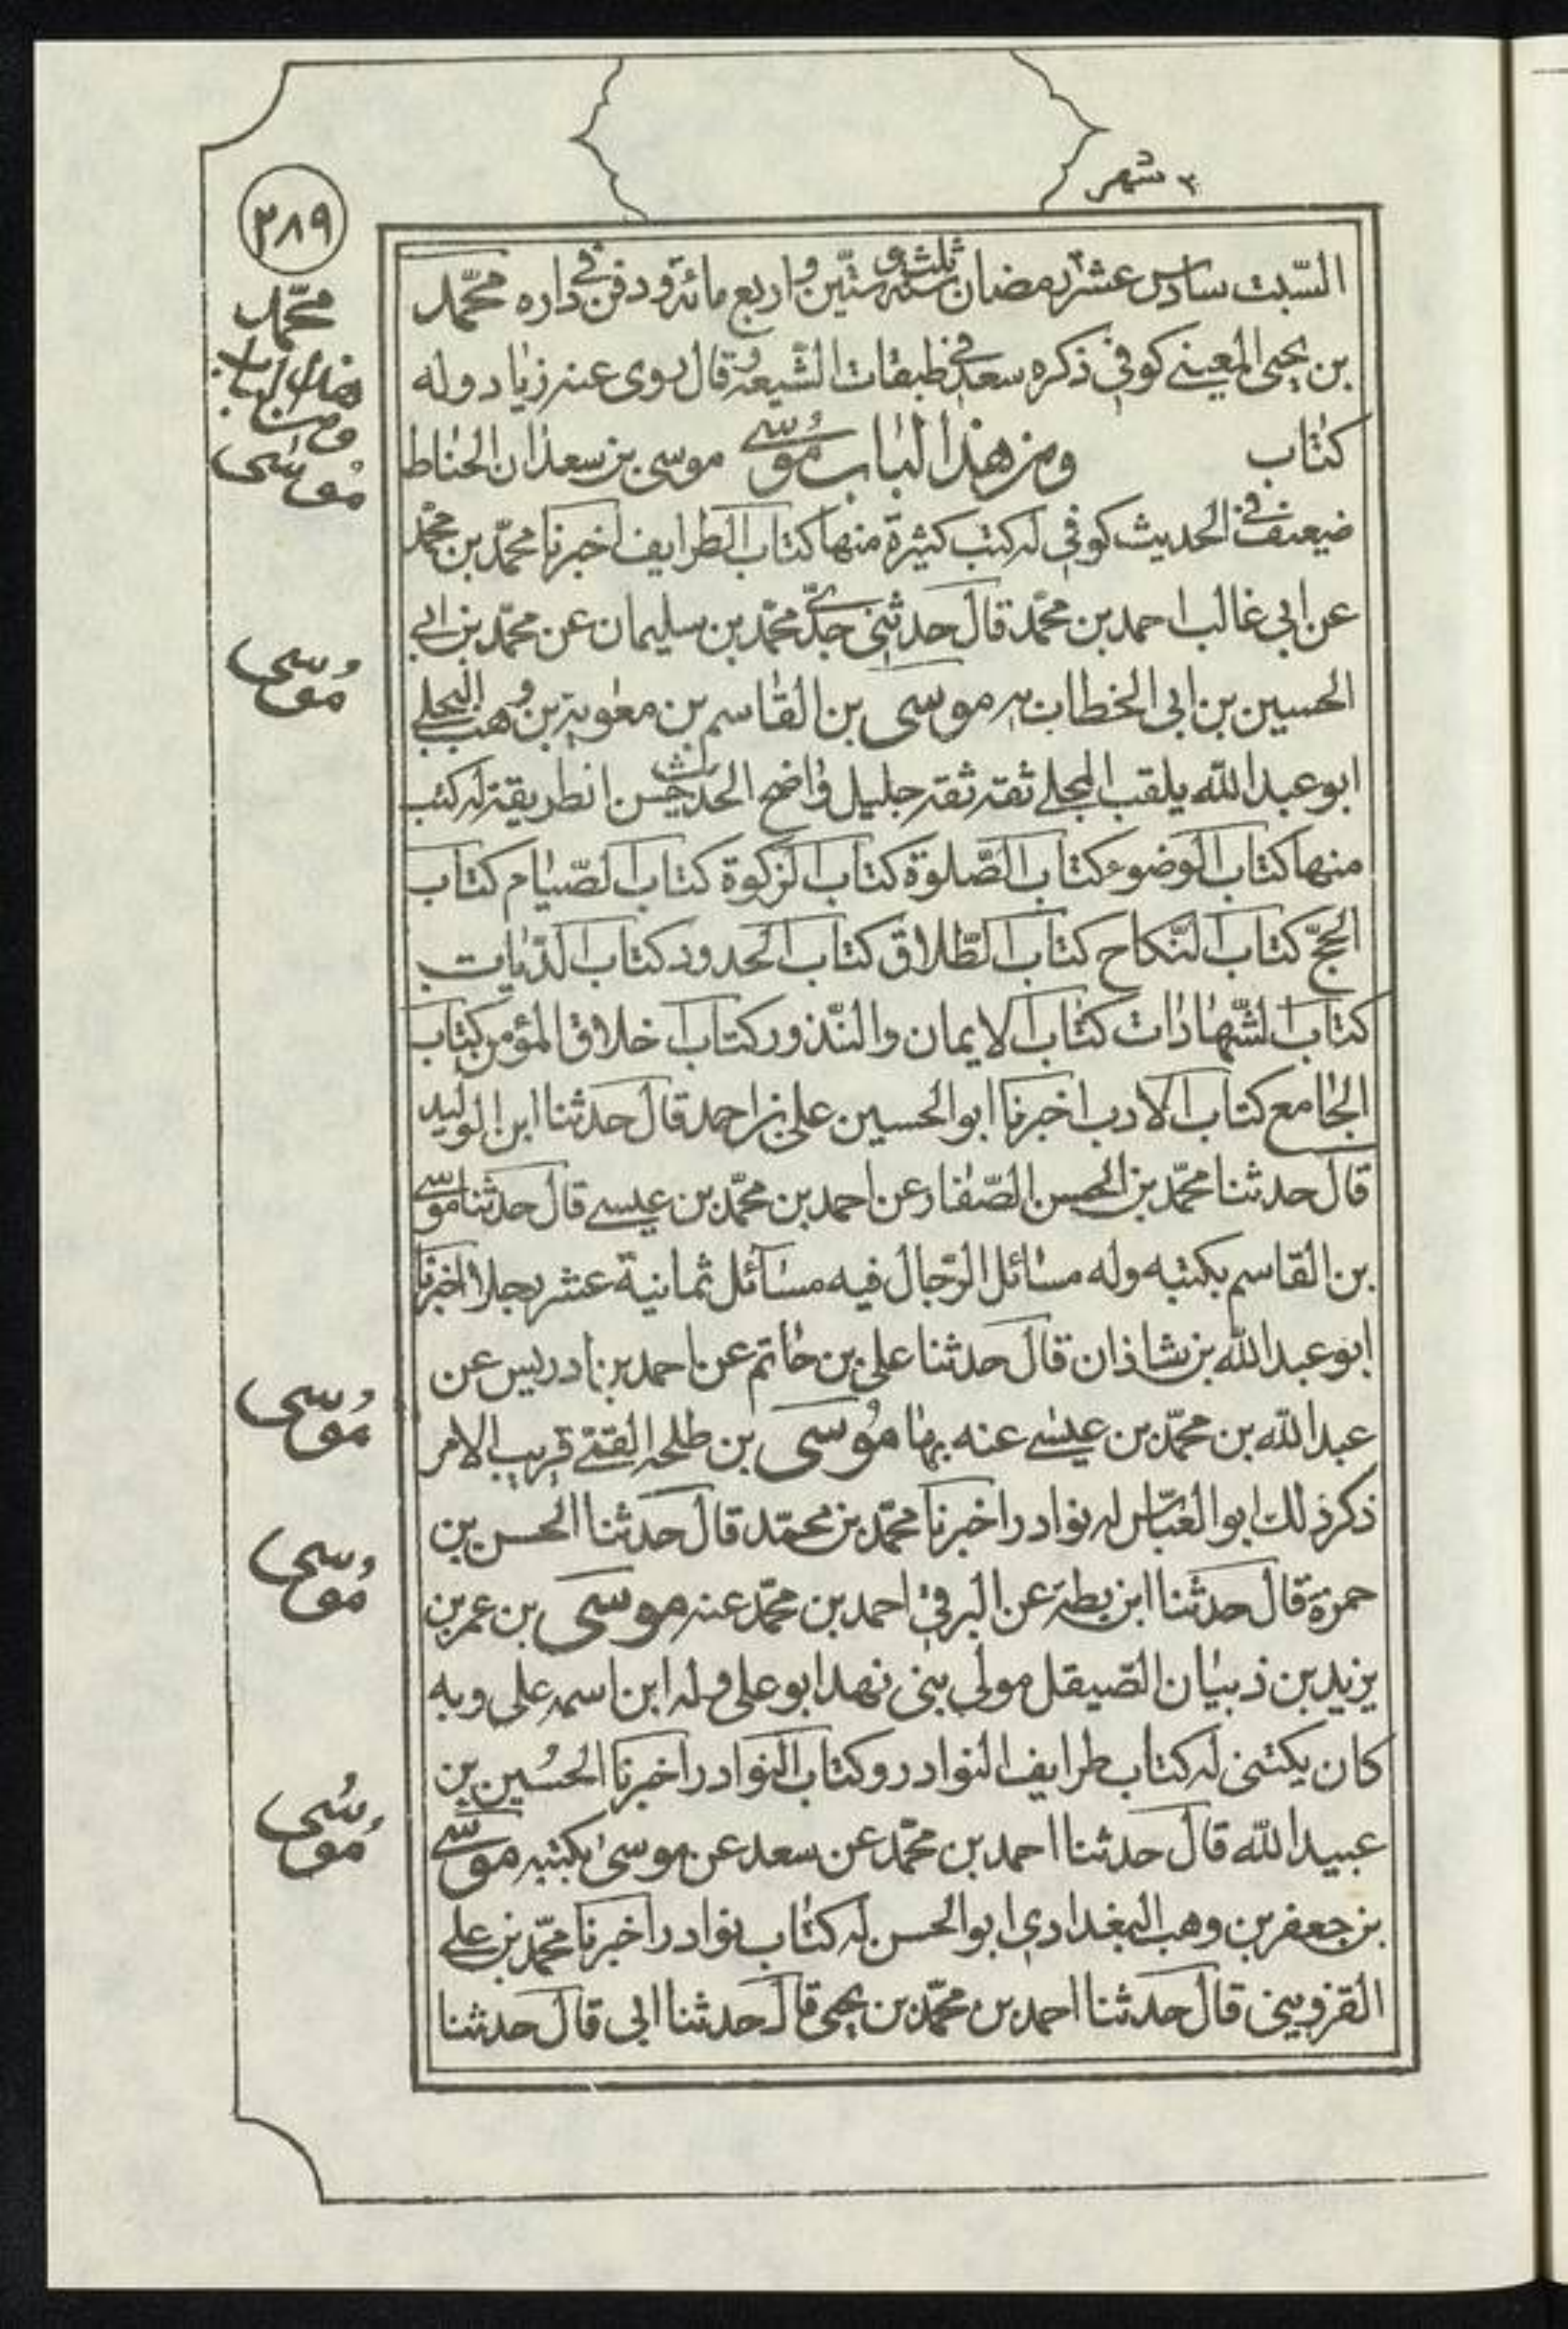 ٣ شهر
٢٨٩
السّبت سادس عشر رمضان سنة ثلث و ستّين و اربع مائة و دفن في داره محمّد
بن يحيى المعيني كوفي ذكره سعد في طبقات الشّيعة و قال روى عنه زياد وله
كتاب ومن هذا الباب موسى موسى بن سعدان الحناط
ضيعف في الحديث كوفي له كتب كثيرة منها كتاب الطرايف اخبرنا محمّد بن محمّد
عن ابي غالب احمد بن محمّد قال حدثني جدّي محمّد بن سليمان عن محمّد بن ابي
الحسين بن ابي الخطاب به موسى بن القاسم بن معوية بن وهب البجلي
ابو عبد الله يلقب المجلي ثقة ثقة جليل واضح الحديث حسن الطريقة له كتب
منها كتاب الوضوء كتاب الصّلوة كتاب الزكوة كتاب الصّيام كتاب
الحجّ كتاب النّكاح كتاب الطّلاق كتاب الحدود كتاب الدّيات
كتاب الشّهادات كتاب الايمان والنّذور كتاب اخلاق المؤمن كتاب
الجامع كتاب الادب اخبرنا ابو الحسين علي بن احمد قال حدثنا ابن الوليد
قال حدثنا محمّد بن الحسن الصّفار عن احمد بن محمّد بن عيسى قال حدثنا موسى
بن القاسم بكتبه وله مسائل الرّجال فيه مسائل ثمانية عشر رجلا اخبرنا
ابو عبد الله بن شاذان قال حدثنا علي بن حاتم عن احمد بن ادريس عن
عبد الله بن محمّد بن عيسى عنه بها موسى بن طلحة القمّي قريب الامر
ذكر ذلك ابو العبّاس له نوادر اخبرنا محمّد بن محمّد قال حدثنا الحسن بن
حمزة قال حدثنا ابن بطة عن البرقي احمد بن محمّد عنه موسى بن عمر بن
يزيد بن ذبيان الصّيقل مولى بني نهد ابو علي وله ابن اسمه علي وبه
كان يكتنى له كتاب طرايف النوادر وكتاب النوادر اخبرنا الحسين بن
عبيد الله قال حدثنا احمد بن محمّد عن سعد عن موسى بكتبه موسى
بن جعفر بن وهب البغدادي ابو الحسن له كتاب نوادر اخبرنا محمّد بن علي
القزويني قال حدثنا احمد بن محمّد بن يحيى قال حدثنا ابي قال حدثنا
محمّد
ومن هذا الباب
موسى
موسى
موسى
موسى
موسى